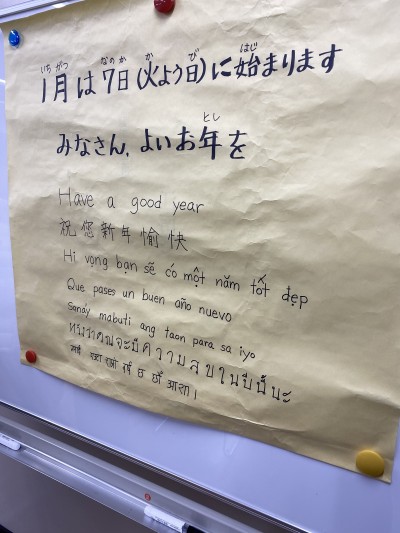 いちがつ なのか か び はじ
1月は7日(火よう日)に始まります
とし
みなさん、よいお年を
Have a good year
祝您新年愉快
Hi vọng bạn sẽ có một năm tốt đẹp
Que pases un buen año nuevo
Sanáy mabuti ang taon para sa iyo
จะมีความสุขในปีนี้นะ